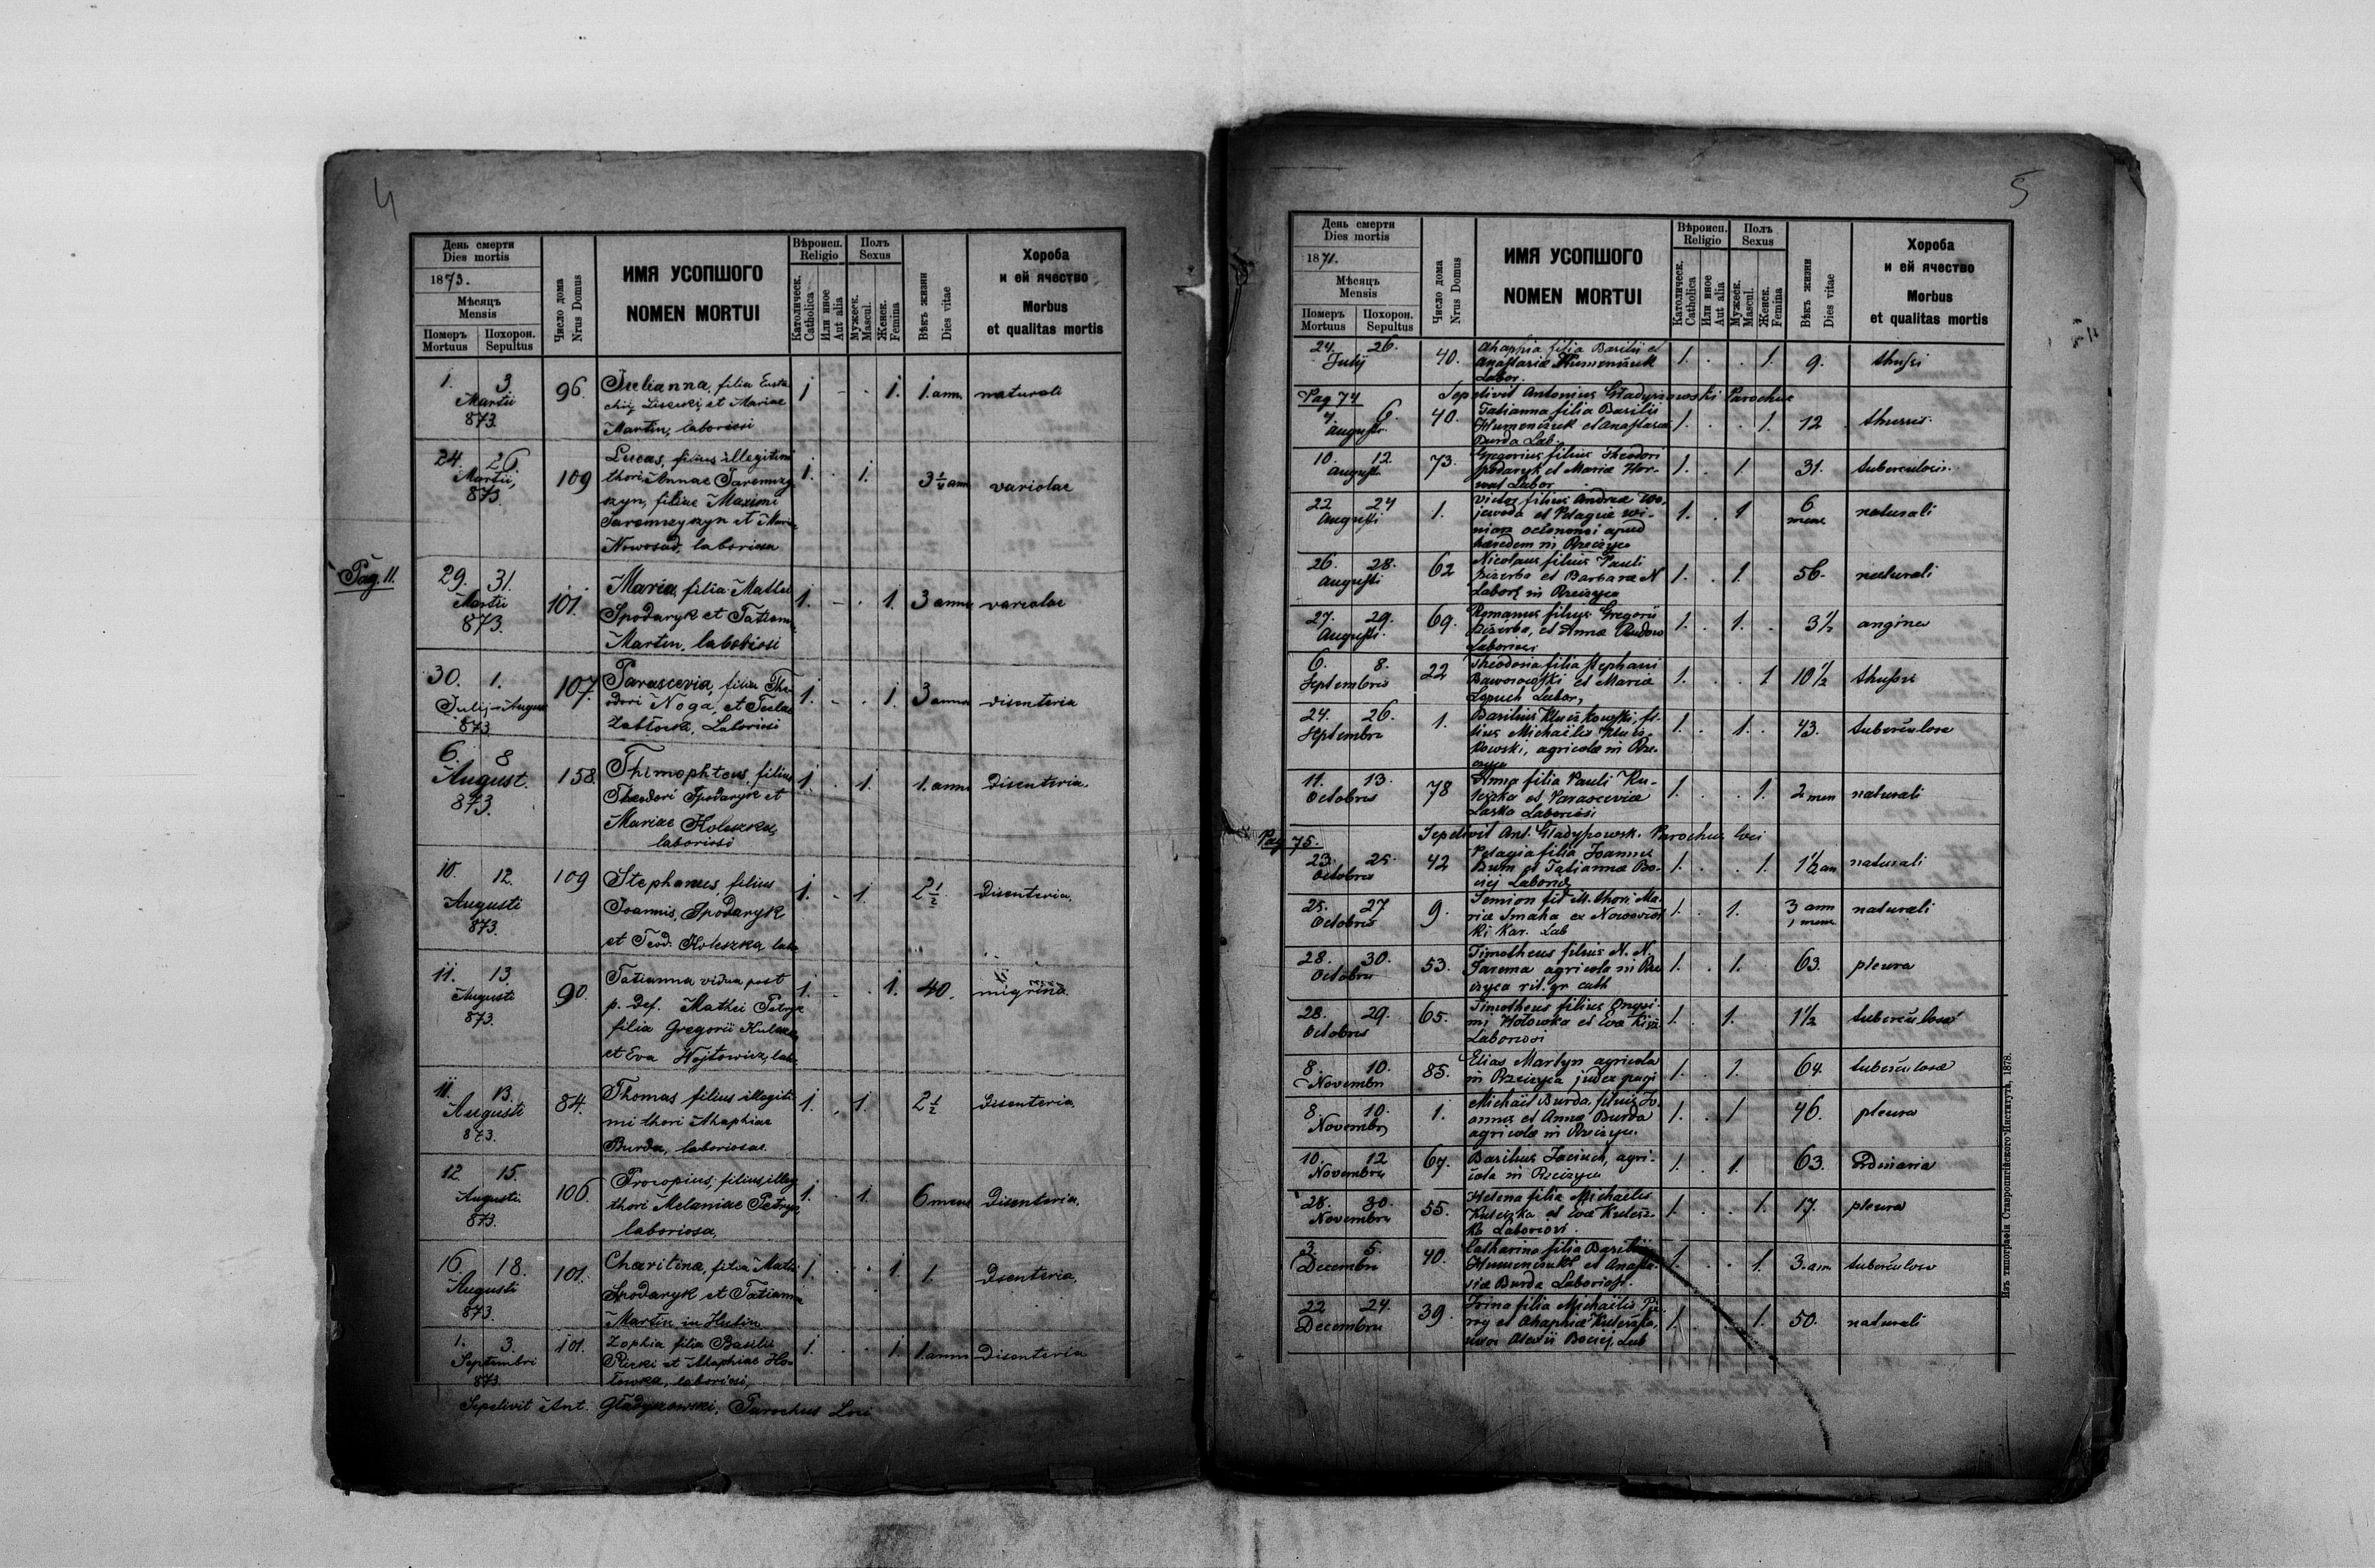 4
День смерти
Dies mortis
1873.
Мѣсяцъ
Mensis
Померъ Похорон.
Mortuus Sepultus
Число дома
Nrus Domus
ИМЯ УСОПШОГО
NOMEN MORTUI
Вѣроисп.
Religio
Католическ.
Catholica
Или иное
Aut alia
Полъ
Sexus
Мужеск.
Mascul.
Женск.
Femina
Вѣкъ жизни
Dies vitae
Хороба
и ей ячество
Morbus
et qualitas mortis
1. 3. Martii 873. 96. Julianna, filia Eusta
chii et Mariae
Martin, laboriosi
1 1. 1. ann. naturali
24. 26. Martii, 873. 109 Lucas, filius illegitimi
thori Annae Jaremczy
szyn, filiae Maximi
Jaremczyszyn et Maria
Nowosad, laboriosa
1. 1. variolae
Pag. 11.
29. 31. Martii 873. 101. Maria, filia Mathei
Spodaryk et Tatianna
Martin, laboriosi
1. 1. 3 anno variolae
30. 1. Julij-August 873. 107. Parascevia, filia The
odori Noga, et Teclae
Laboriosi
1. 1. 3 anno disenteria
6. 8 August. 873. 158. Thimophteus, filius
Theodori Spodaryk et
Mariae Koleszka,
laboriosi
1. 1. 1. anno Disenteria.
10. 12. Augusti 873. 109 Stephanus, filius
Joannis, Spodaryk
et Teod. Koleszka, labo
1. 1. 2½ Disenteria.
11. 13. Augusti 873. 90. Tatianna vidua post
p. Def. Mathei Petryk
filia Gregorii Kuleszka
et Eva Wojtowicz, labo
1. 1. 40. migrina
11. 13. Augusti 873. 84. Thomas filius illegiti
mi thori Ahaphiae
Burda, laboriosae
1. 1. 2½ Disenteria.
12 15. Augusti 873. 106. Procopius, filius illeg
thori Melaniae Petryk
laboriosa,
1. 1. 6 mens Disenteria.
16. 18. Augusti 873. 101. Charitina, filia Mathei
Spodaryk et Tatianna
Martin, in Hubin
1. 1 1. Disenteria,
1. 3. Septembri 873. 101. Zophia filia Basilii
et Ahaphiae Ho-
łowka, laboriosi,
1. 1. 1. anno Disenteria
Sepelivit Ant. Gładyszowski, Parochus Loci
5
День смерти
Dies mortis
1871.
Мѣсяцъ
Mensis
Померъ Похорон.
Mortuus Sepultus
Число дома
Nrus Domus
ИМЯ УСОПШОГО
NOMEN MORTUI
Вѣроисп.
Religio
Католическ.
Catholica
Или иное
Aut alia
Полъ
Sexus
Мужеск.
Mascul.
Женск.
Femina
Вѣкъ жизни
Dies vitae
Хороба
и ей ячество
Morbus
et qualitas mortis
24. 26. Julij 40. Ahaphia filia Basilii et
Anastasiae Humeniuk
Labor.
1. 1. 9. thussi
Pag 74 Sepelivit Antonius Gładyszowski Parochus
6. Augusti 40. Tatianna filia Basilii
Humeniuk et Anastasia
Burda Lab.
1. 1. 12 thussis
10. 12. Augusti 73. Gregorius filius Theodori
Spodaryk et Maria Hor-
wat Labor
1. 1. 31. tuberculosis
22 24 Augusti 1. Victor filius Andrea Wo-
jewoda et Pelagiae Wi-
niarz oeconomi apud
haeredem in Rzeczyca
1. 1 6 mens naturali
26. 28. Augusti 62 Nicolaus filius Pauli
et Barbarae N
Labor in Rzeczyca
1. 1. 56. naturali
27. 29. Augusti 69. Romanus filius Gregorii
et Anna
Laboriosi
1. 1. 3½ angina
6. 8. Septembris 22 Theodosia filia Stephani
Baworowski et Maria
Łopuch Labor,
1. 1 10½ thussi
24. 26. Septembris 1. Basilius Kluczkowski, fi-
lius Michaelis Klucz-
kowski, agricola in Rze-
czyca
1. 1. 43. tuberculosa
11. 13. Octobris 78 Anna filia Pauli Ku-
leszka et Parascevia
Lasko Laboriosi
1. 1. 2 men naturali
Pag 75. Sepelivit Ant. Gładyszowsk. Parochus loci
23. 25. Octobris 42 Pelagia filia Joannis
et Tatianna Bo-
ciej Labor
1. 1. 1½ an naturali
25. 27 Octobris 9. Semion fil ill. thori Ma-
ria Smaha ex Nowosiół-
ki Kar. Lab
1. 1. 3 ann 1 mens naturali
28. 30. Octobris 53. Timotheus filius N. N.
Jarema agricola in Rze
czyca rit. gr cath
1. 1. 63. pleura
28. 29. Octobris 65. Timotheus filius Onysi-
mi Hołowka et Eva
Laboriosi
1. 1. 1½ tuberculosa
8. 10. Novembri 85. Elias Martyn agricola
in Rzeczyca judex pagi
1. 1. 64. tuberculosa
8. 10. Novembri 1. Michaël Burda, filius Jo-
annis et Anna Burda
agricola in Rzeczyca
1. 1 46. pleura
10. 12 Novembri 67. Basilius Jaciuch, agri-
cola in Rzeczyca
1. 1. 63. Ordinaria
28. 30. Novembri 55. Helena filia Michaelis
Kuleszka et Eva Kulesz-
ka Laboriosi
1. 1. 17. pleura
3. 5. Decembri 40. Catharina filia Basilii
Humeniuk et Anasta-
sia Burda Labor
1. 1. 3. ann tuberculosa
22 24. Decembri 39. Irina filia Michaëlis Pi-
rog et Ahaphia Kuleszka,
uxor Alexii Bociej, Lab
1. 1. 50. naturali
Изъ типографіи Ставропигійского Института, 1878.